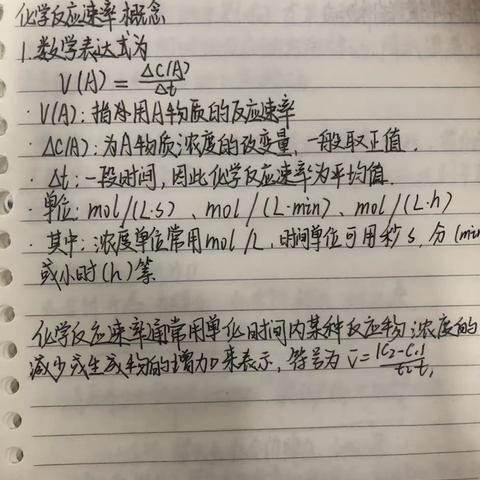 化学反应速率概念
1.数学表达式为
V(A) = ΔC(A)/Δt
· V(A): 指用A物质的反应速率
· ΔC(A): 为A物质浓度的改变量, 一般取正值.
· Δt: 一段时间, 因此化学反应速率为平均值.
· 单位: mol/(L·s)、mol/(L·min)、mol/(L·h)
· 其中: 浓度单位常用mol/L, 时间单位可用秒s, 分(min
或小时(h)等
化学反应速率通常用单位时间内某种反应物浓度的
减少或生成物的增加来表示, 符号为 v̄=|C₂-C₁|/t₂-t₁